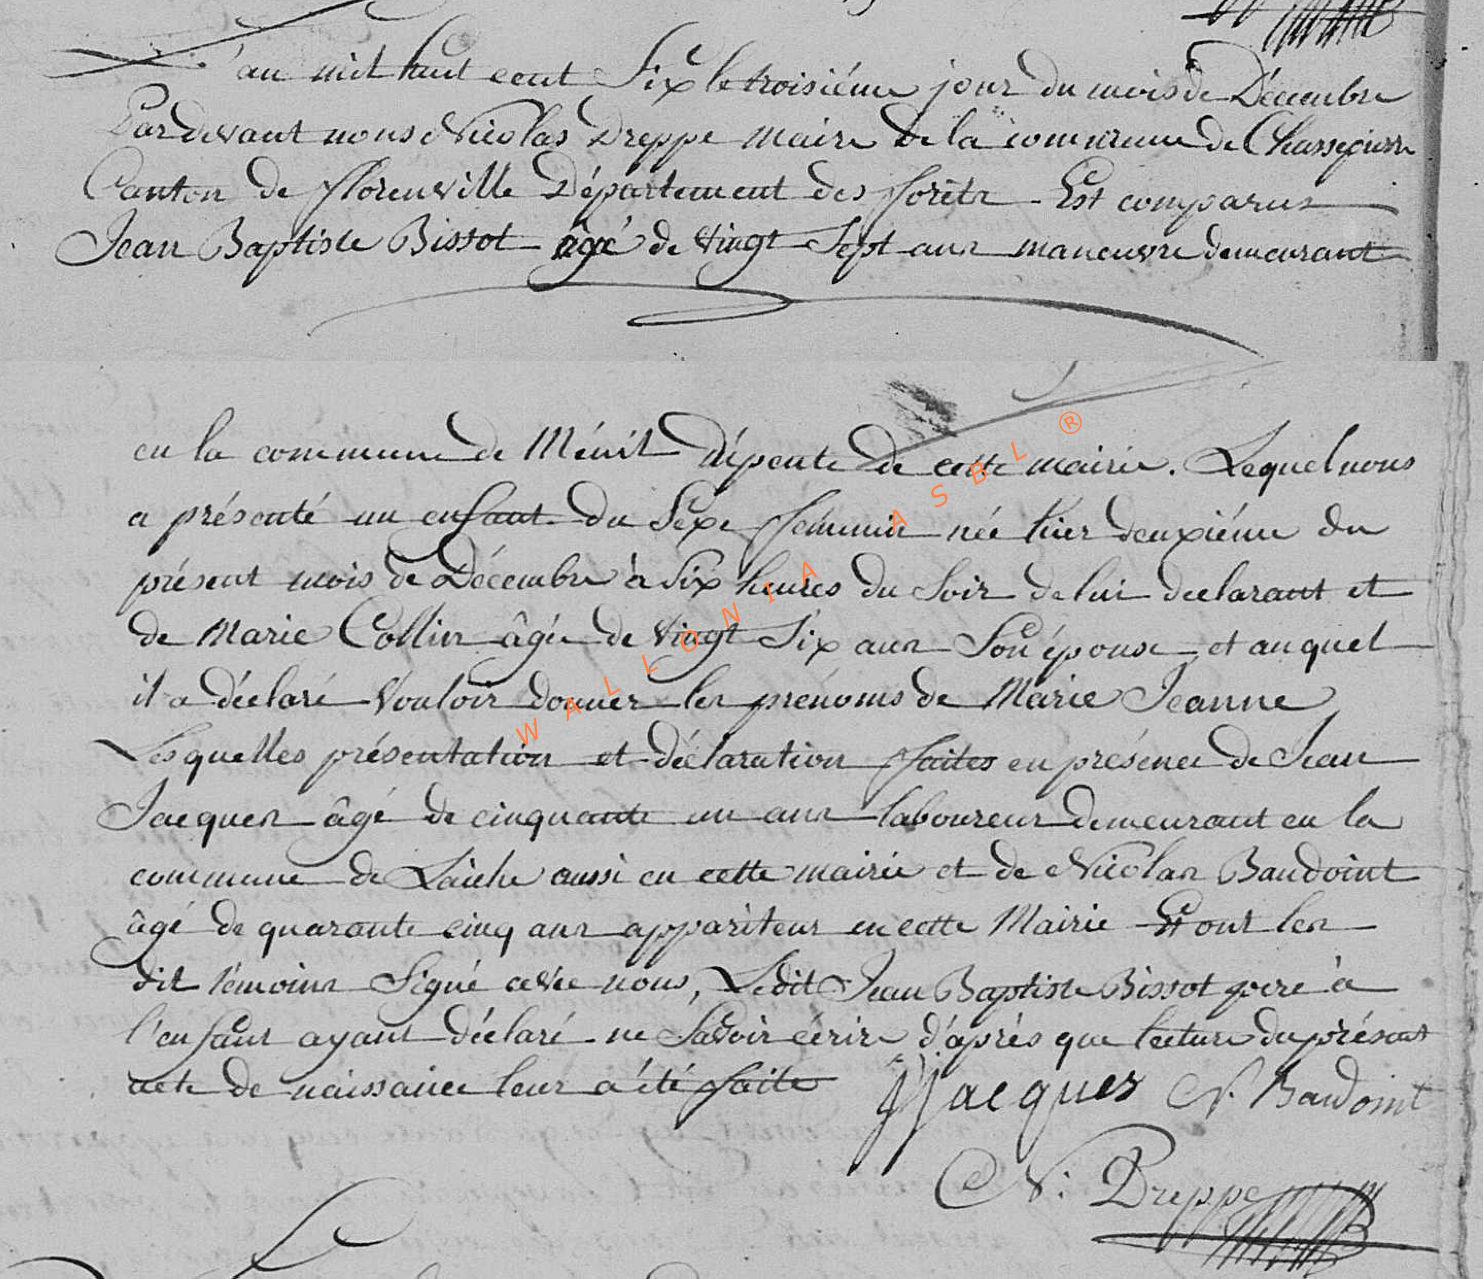 L'an mil huit cent Six le troisiéme jour du mois de Décembre
Pardevant nous Nicolas Dreppe Maire de la commune de Chassepierre
Canton de florenville Département des forêts - Est comparus
Jean Baptiste Bissot âgé de vingt Sept ans manœuvre demeurant
en la commune de Ménil dépente de cette mairie. Lequel nous
a présenté un enfant du Sexe féminin née hier deuxiéme du
présent mois de Décembre à Six heures du Soir de lui declarant et
de Marie Collin âgée de vingt Six ans Son épouse et auquel
il a déclaré Vouloir donner les prénoms de Marie Jeanne
Lesquelles présentation et déclaration faites en présence de Jean
Jacques âgé de cinquante un ans laboureur demeurant en la
commune de Laiche aussi en cette mairie et de Nicolas Baudoint
âgé de quarante cinq ans appariteur en cette Mairie Et ont les
dit témoins Signé avec nous, Ledit Jean Baptiste Bissot pere à
l'enfant ayant déclaré ne Savoir écrire d'après que lecture du présent
acte de naissance leur a été faite
JJacques N. Baudoint
N: Dreppe
WALLONIA ASBL ®